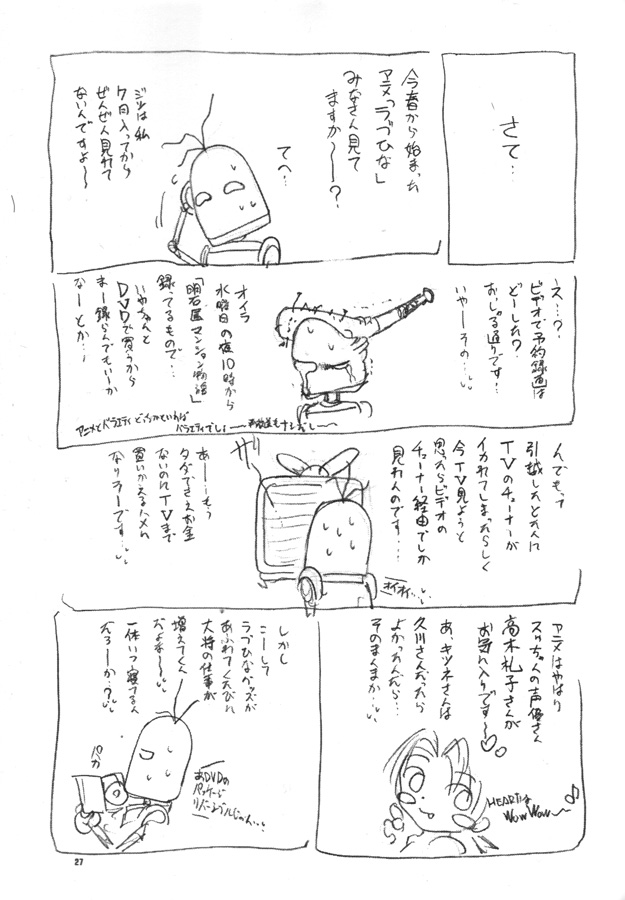 さて…
今春から始まった
アニメ「ラブひな」
みなさん見て
ますか～～？
てへ…
ジツは私
7月入ってから
ぜんぜん見れて
ないんですよ～～
え…？
ビデオで予約録画は
どーした？
おじゃる通りです…
いやーその…
オイラ
水曜日の夜10時から
「明石屋マンション物語」
録ってるもので…
いやちゃんと
DVDで買うから
まー録らんでもいーか
なーとか…
アニメとバラエティどっちかといわれば
バラエティでしょ——
んでもって
引越ししたとたんに
TVのチューナーが
イカれてしまったらしく
今TV見ようと
思ったらビデオの
チューナー経由でしか
見れんのです…
あー…もう
タダでさえお金
ないのにTVまで
買いかえるハメに
なりそーです…
オイオイ…
アニメはやはり
スゥちゃんの声優さん
高木礼子さんが
お気に入りです～♡
あ、キツネさんは
久川さんだったら
よかったんだら…
そのまんまか…
HEARTは
WoW WoW～♪
しかし
こーして
ラブひなグッズが
あふれてくたびに
大将の仕事が
増えてくん
だよな～～
一体いつ寝てるん
だろーか…？
パカ
あDVDの
パッケージ
リバーシブルじゃん…
27